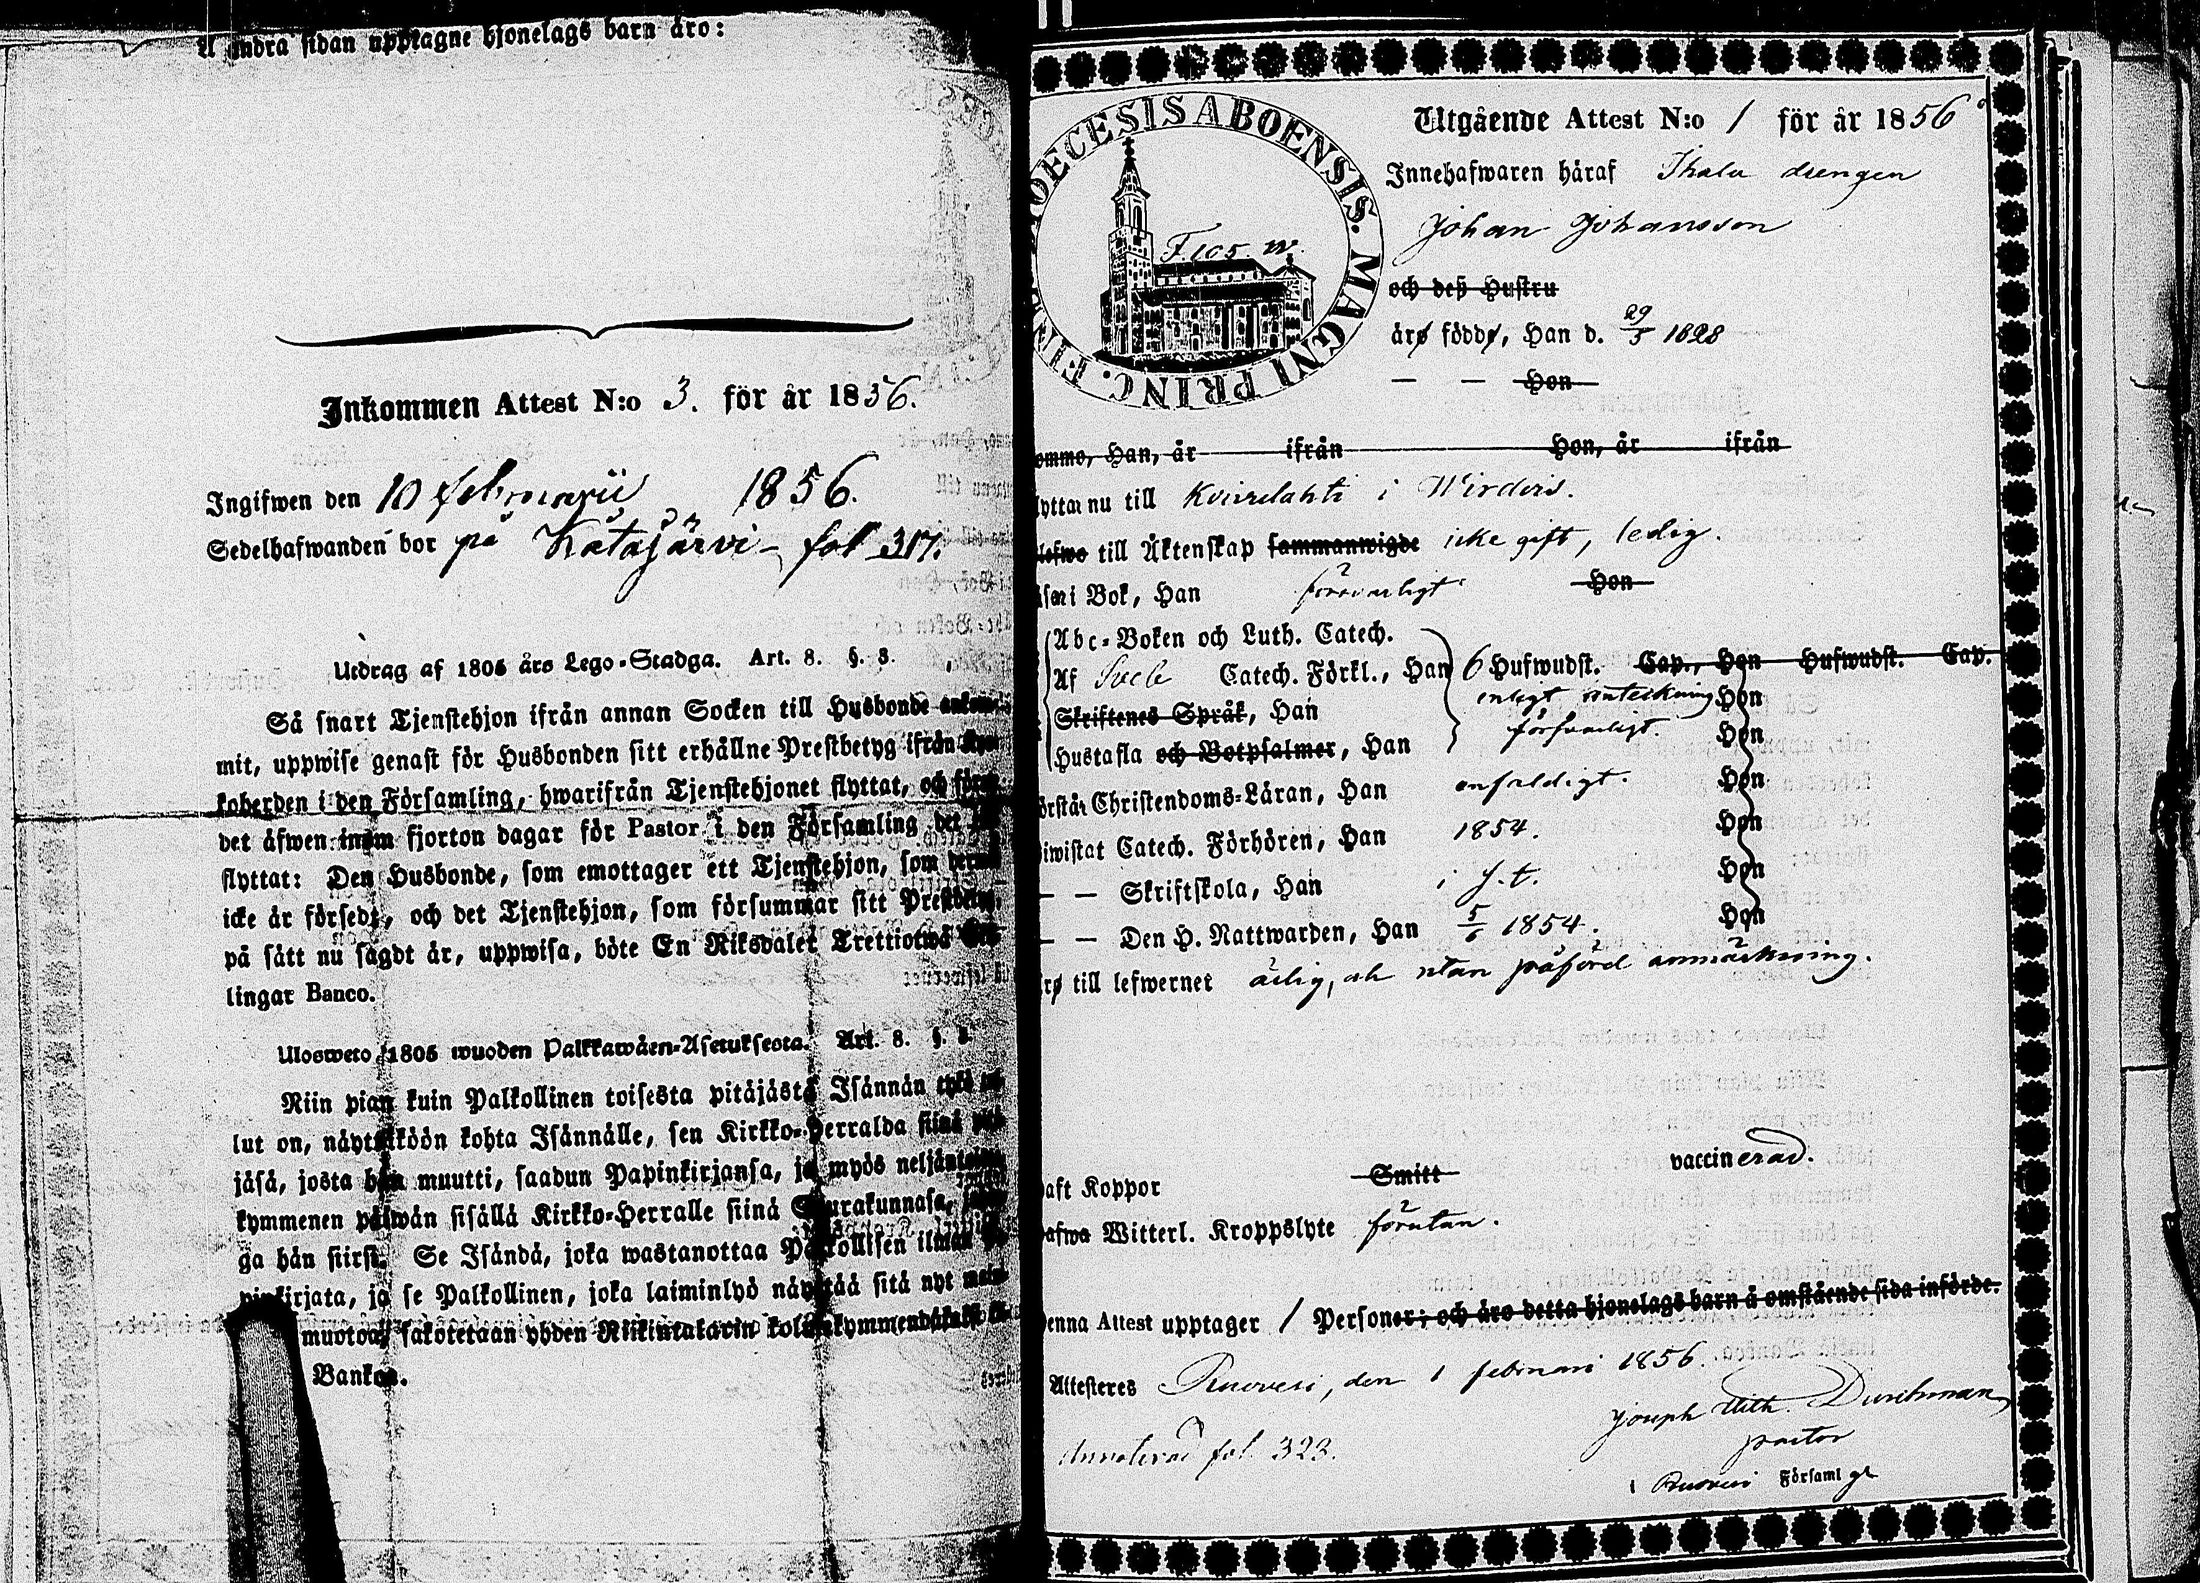 å andra sidan upptagne hjonelags barn äro:
Inkommen Attest N:o 3. för år 1856.
Ingifwen den 10 februarii 1856.
Sedelhafwanden bor på Katajärvi fol 317.
Utdrag af 1805 års Lego-Stadga. Art. 8. §. 3.
Så snart Tjenstehjon ifrån annan Socken till Husbonde
mit, uppwise genast för Husbonden sitt erhållne Prestbetyg ifrån
koherden i den Församling, hwarifrån Tjenstehjonet flyttat, och
det äfwen inom fjorton dagar för Pastor i den Församling det
flyttat: Den Husbonde, som emottager ett Tjenstehjon, som
icke är försedt, och det Tjenstehjon, som försummar sitt Prestbetyg,
på sätt nu sagdt är, uppwisa, böte En Riksdaler Trettiotwå
lingar Banco.
Ulosweto 1805 wuoden Palkkawäen-Asetuksesta. Art. 8. §. 3.
Niin pian kuin Palkollinen toisesta pitäjästä Isännän
lut on, näyttäköön kohta Isännälle, sen Kirkko-Herralda siinä
jäsä, josta hän muutti, saadun Papinkirjansa, ja myös
kymmenen päiwän sisällä Kirkko-Herralle siinä Seurakunnasa,
ga hän siirsi. Se Isändä, joka wastanottaa Palkollisen ilman
pinkirjata, ja se Palkollinen, joka laiminlyö näyttää sitä nyt
muotoa, sakotetaan yhden Riikintalarin
Bankoa.
DIOECESIS ABOENSIS. MAGNI PRINC. FINL.
F. 105.
Utgående Attest N:o 1 för år 1856
Innehafwaren häraf drengen
Johan Johansson
och deß Hustru
äro födde, Han d. 29/5 1828
— — Hon
ommo, Han, år ifrån Hon, år ifrån
lyttar nu till i Wirdois.
lefwe till Äktenskap sammanwigde icke gift, ledig.
äser i Bok, Han försvarligt Hon
Abc-Boken och Luth. Catech.
Af Sveb Catech. Förkl., Han 6 Hufwudst. Cap., Hon Hufwudst. Cap.
enligt anteckning Hon
Skriftenes Språk, Han
Hustafla och Botpsalmer, Han försvarligt. Hon
örstår Christendoms-Läran, Han enfaldigt. Hon
iwistat Catech. Förhören, Han 1854. Hon
— — Skriftskola, Han i s. t. Hon
— — Den H. Nattwarden, Han 5/6 1854. Hon
äro till lefwernet ärlig, och utan påförd anmärkning.
aft Koppor Smitt vaccinerad.
afwa Witterl. Kroppslyte förutan.
enna Attest upptager 1 Personer; och äro detta hjonelags barn å omstående sida införde.
Attesteres Ruovesi, den 1 februari 1856.
Joseph Wilh. Durchman
pastor
Annoterad fol 323.
i Ruovesi Församl ge